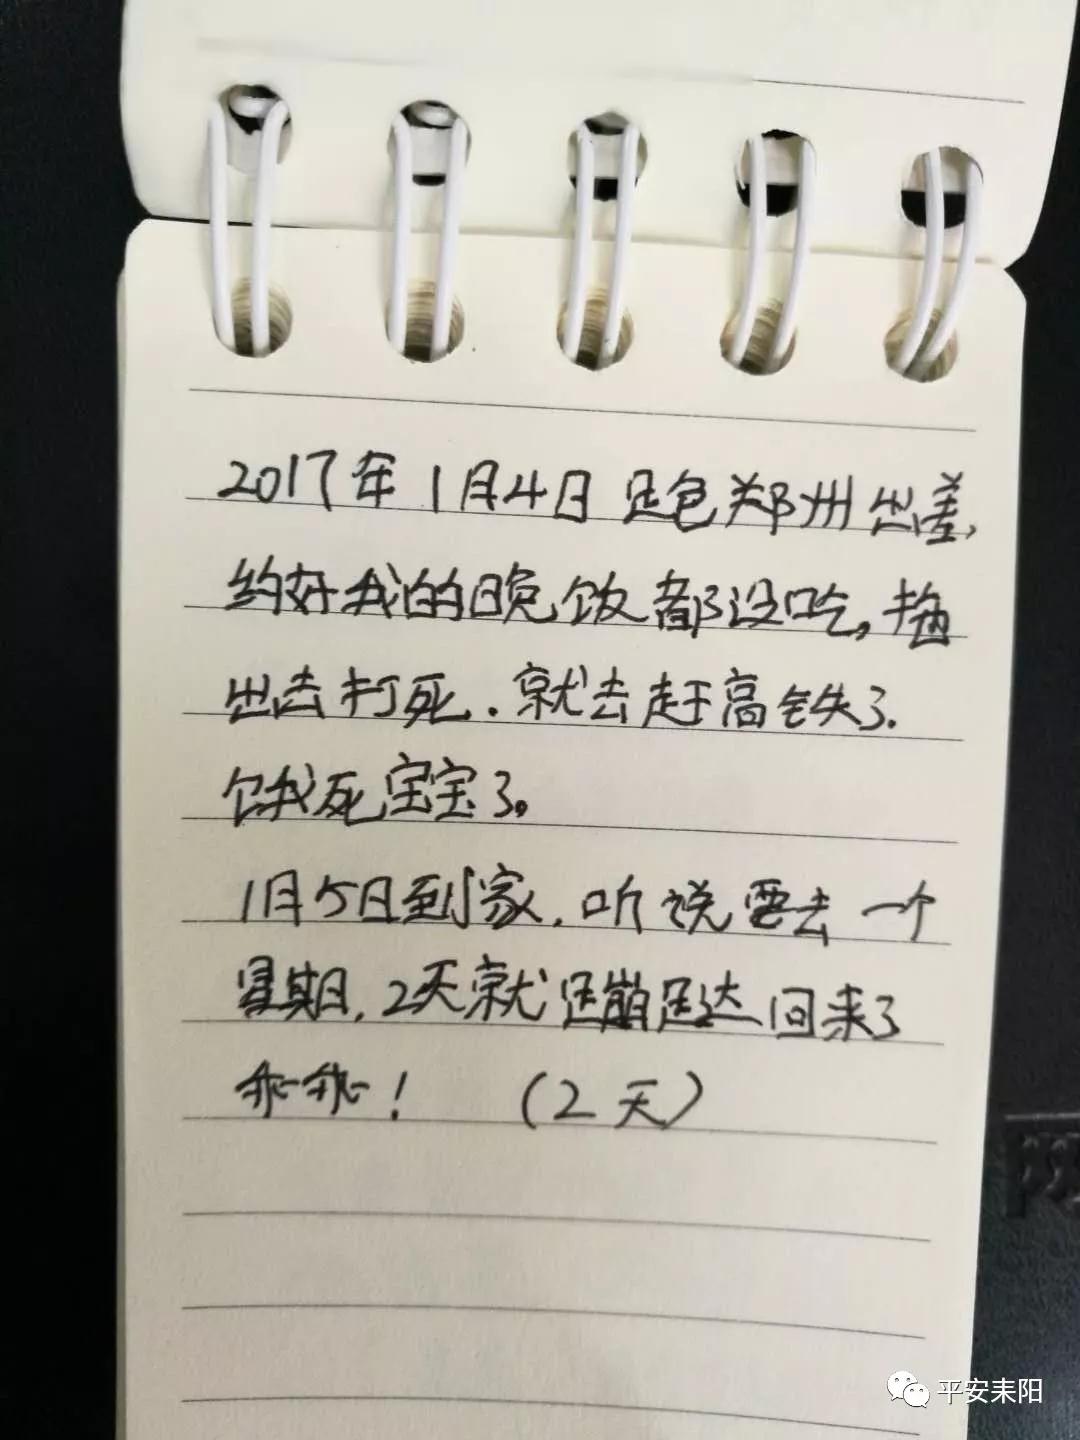 2017年1月4日跑郑州出差,
约好我的晚饭都没吃,拖
出去打死.就去赶高铁了.
饿死宝宝了。
1月5日到家.听说要去一个
星期,2天就蹦跶回来了
! (2天)
平安耒阳